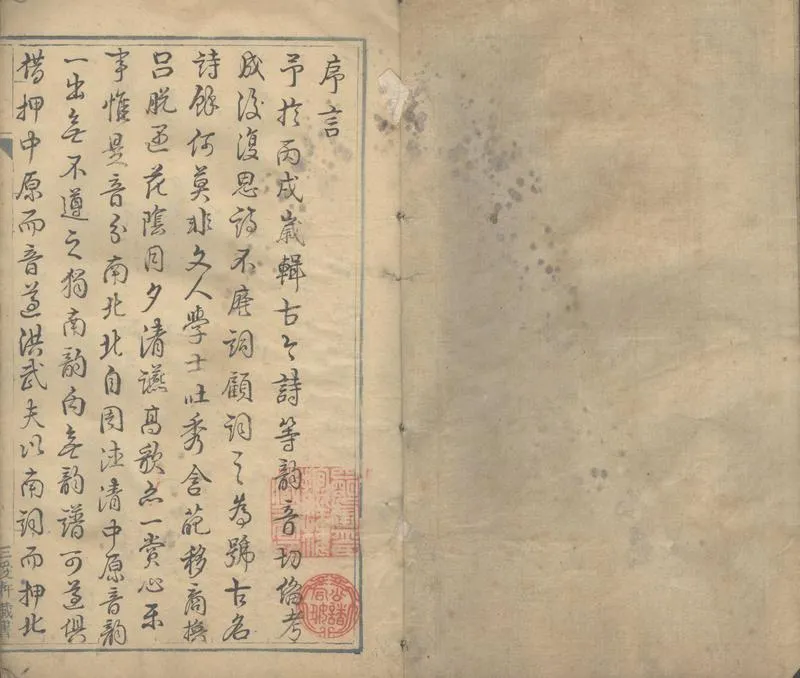 序言
予於丙戌歲輯古今詩等韵音切備考
成後復思詩不廢詞顧詞之為號古名
詩餘何莫非文人學士吐秀含葩移商換
呂脫遇花陰月夕清讌高歌亦一賞心樂
事惟是音分南北北自周德清中原音韵
一出無不遵之獨南韵向無韵譜可遵俱
借押中原而音遵洪武夫以南詞而押北